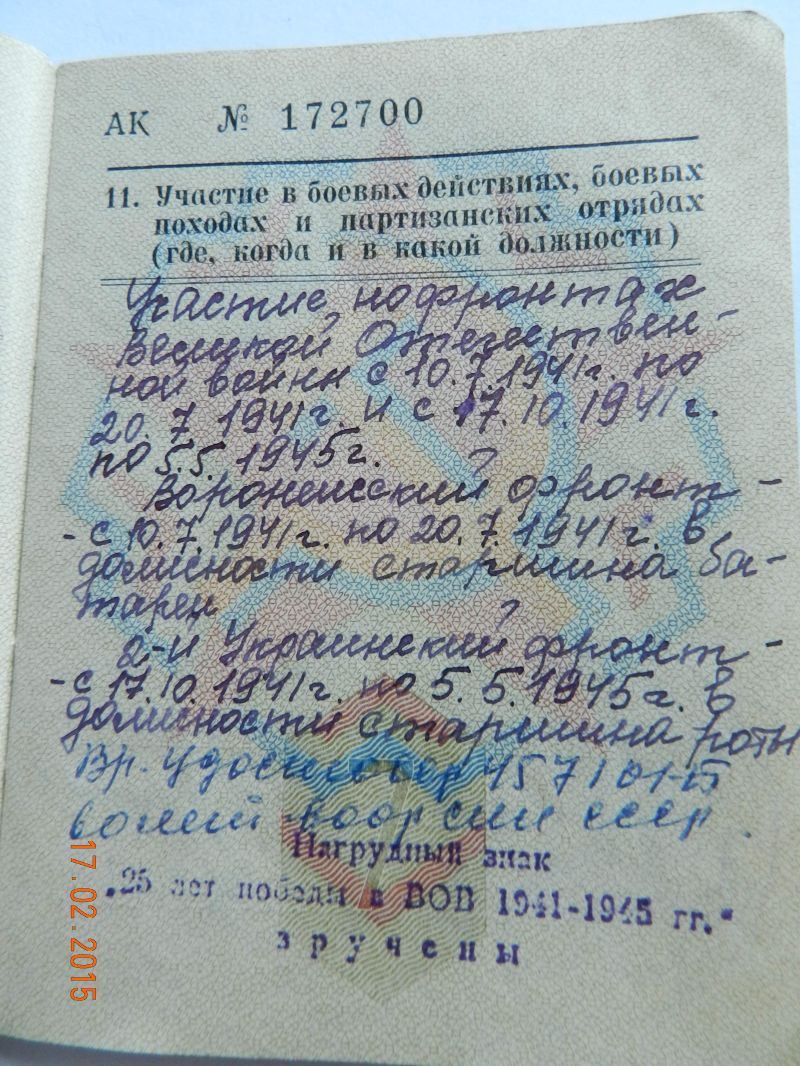 АК № 172700
11. Участие в боевых действиях, боевых
походах и партизанских отрядах
(где, когда и в какой должности)
Участие на фронтах
Великой Отечествен-
ной войны с 10.7.1941г. по
20.7.1941г. и с 17.10.1941г.
по 5.5.1945г.
Воронежский фронт -
- с 10.7.1941г. по 20.7.1941г. в
должности старшина ба-
тареи
2-й Украинский фронт -
- с 17.10.1941г. по 5.5.1945г. в
должности старшина роты
Вр.
СССР
Нагрудный знак
„25 лет победы в ВОВ 1941-1945 гг."
вручены
17.02.2015